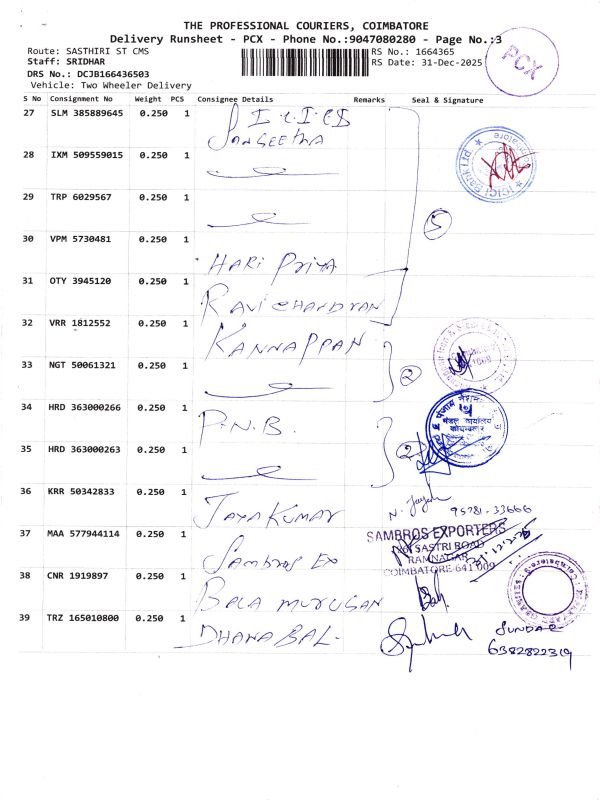 THE PROFESSIONAL COURIERS, COIMBATORE
Delivery Runsheet - PCX - Phone No.:9047080280 - Page No.:3
Route: SASTHIRI ST CMS
RS No.: 1664365
Staff: SRIDHAR
RS Date: 31-Dec-2025
DRS No.: DCJB166436503
Vehicle: Two Wheeler Delivery
PCX
S No Consignment No Weight PCS Consignee Details Remarks Seal & Signature
27 SLM 385889645 0.250 1 I.C.I.C.I
SANGEETHA
28 IXM 509559015 0.250 1
ICICI Bank
29 TRP 6029567 0.250 1
5
30 VPM 5730481 0.250 1 HARI PRIYA
31 OTY 3945120 0.250 1 RAVICHANDRAN
32 VRR 1812552 0.250 1 KANNAPPAN
33 NGT 50061321 0.250 1
2
34 HRD 363000266 0.250 1 P.N.B.
मंडल कार्यालय
2
35 HRD 363000263 0.250 1
36 KRR 50342833 0.250 1 JAYA KUMAR
95781-33666
37 MAA 577944114 0.250 1 Sambros Ex
SAMBROS EXPORTERS
SASTRI ROAD
RAMNAGAR
COIMBATORE-641 009
38 CNR 1919897 0.250 1 BALA MURUGAN
39 TRZ 165010800 0.250 1 DHANABAL.
SUNDAR
6382822319